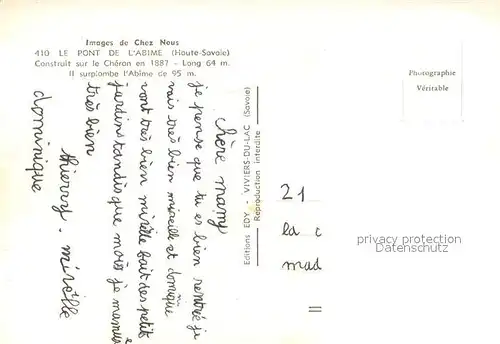 Images de Chez Nous
410 LE PONT DE L'ABIME (Haute-Savoie)
Construit sur le Chéran en 1887 - Long 64 m.
Il surplombe l'Abîme de 95 m.
Photographie
Véritable
Editions EDY - VIVIERS-DU-LAC (Savoie)
Reproduction interdite
chère mamy
je pense que tu es bien rentrée je
vais très bien mireille et dominique
vont très bien mireille fait des petits
jardins tandis que moi je
très bien
thierry. mireille
dominique
21
la
mad
privacy protection
Datenschutz